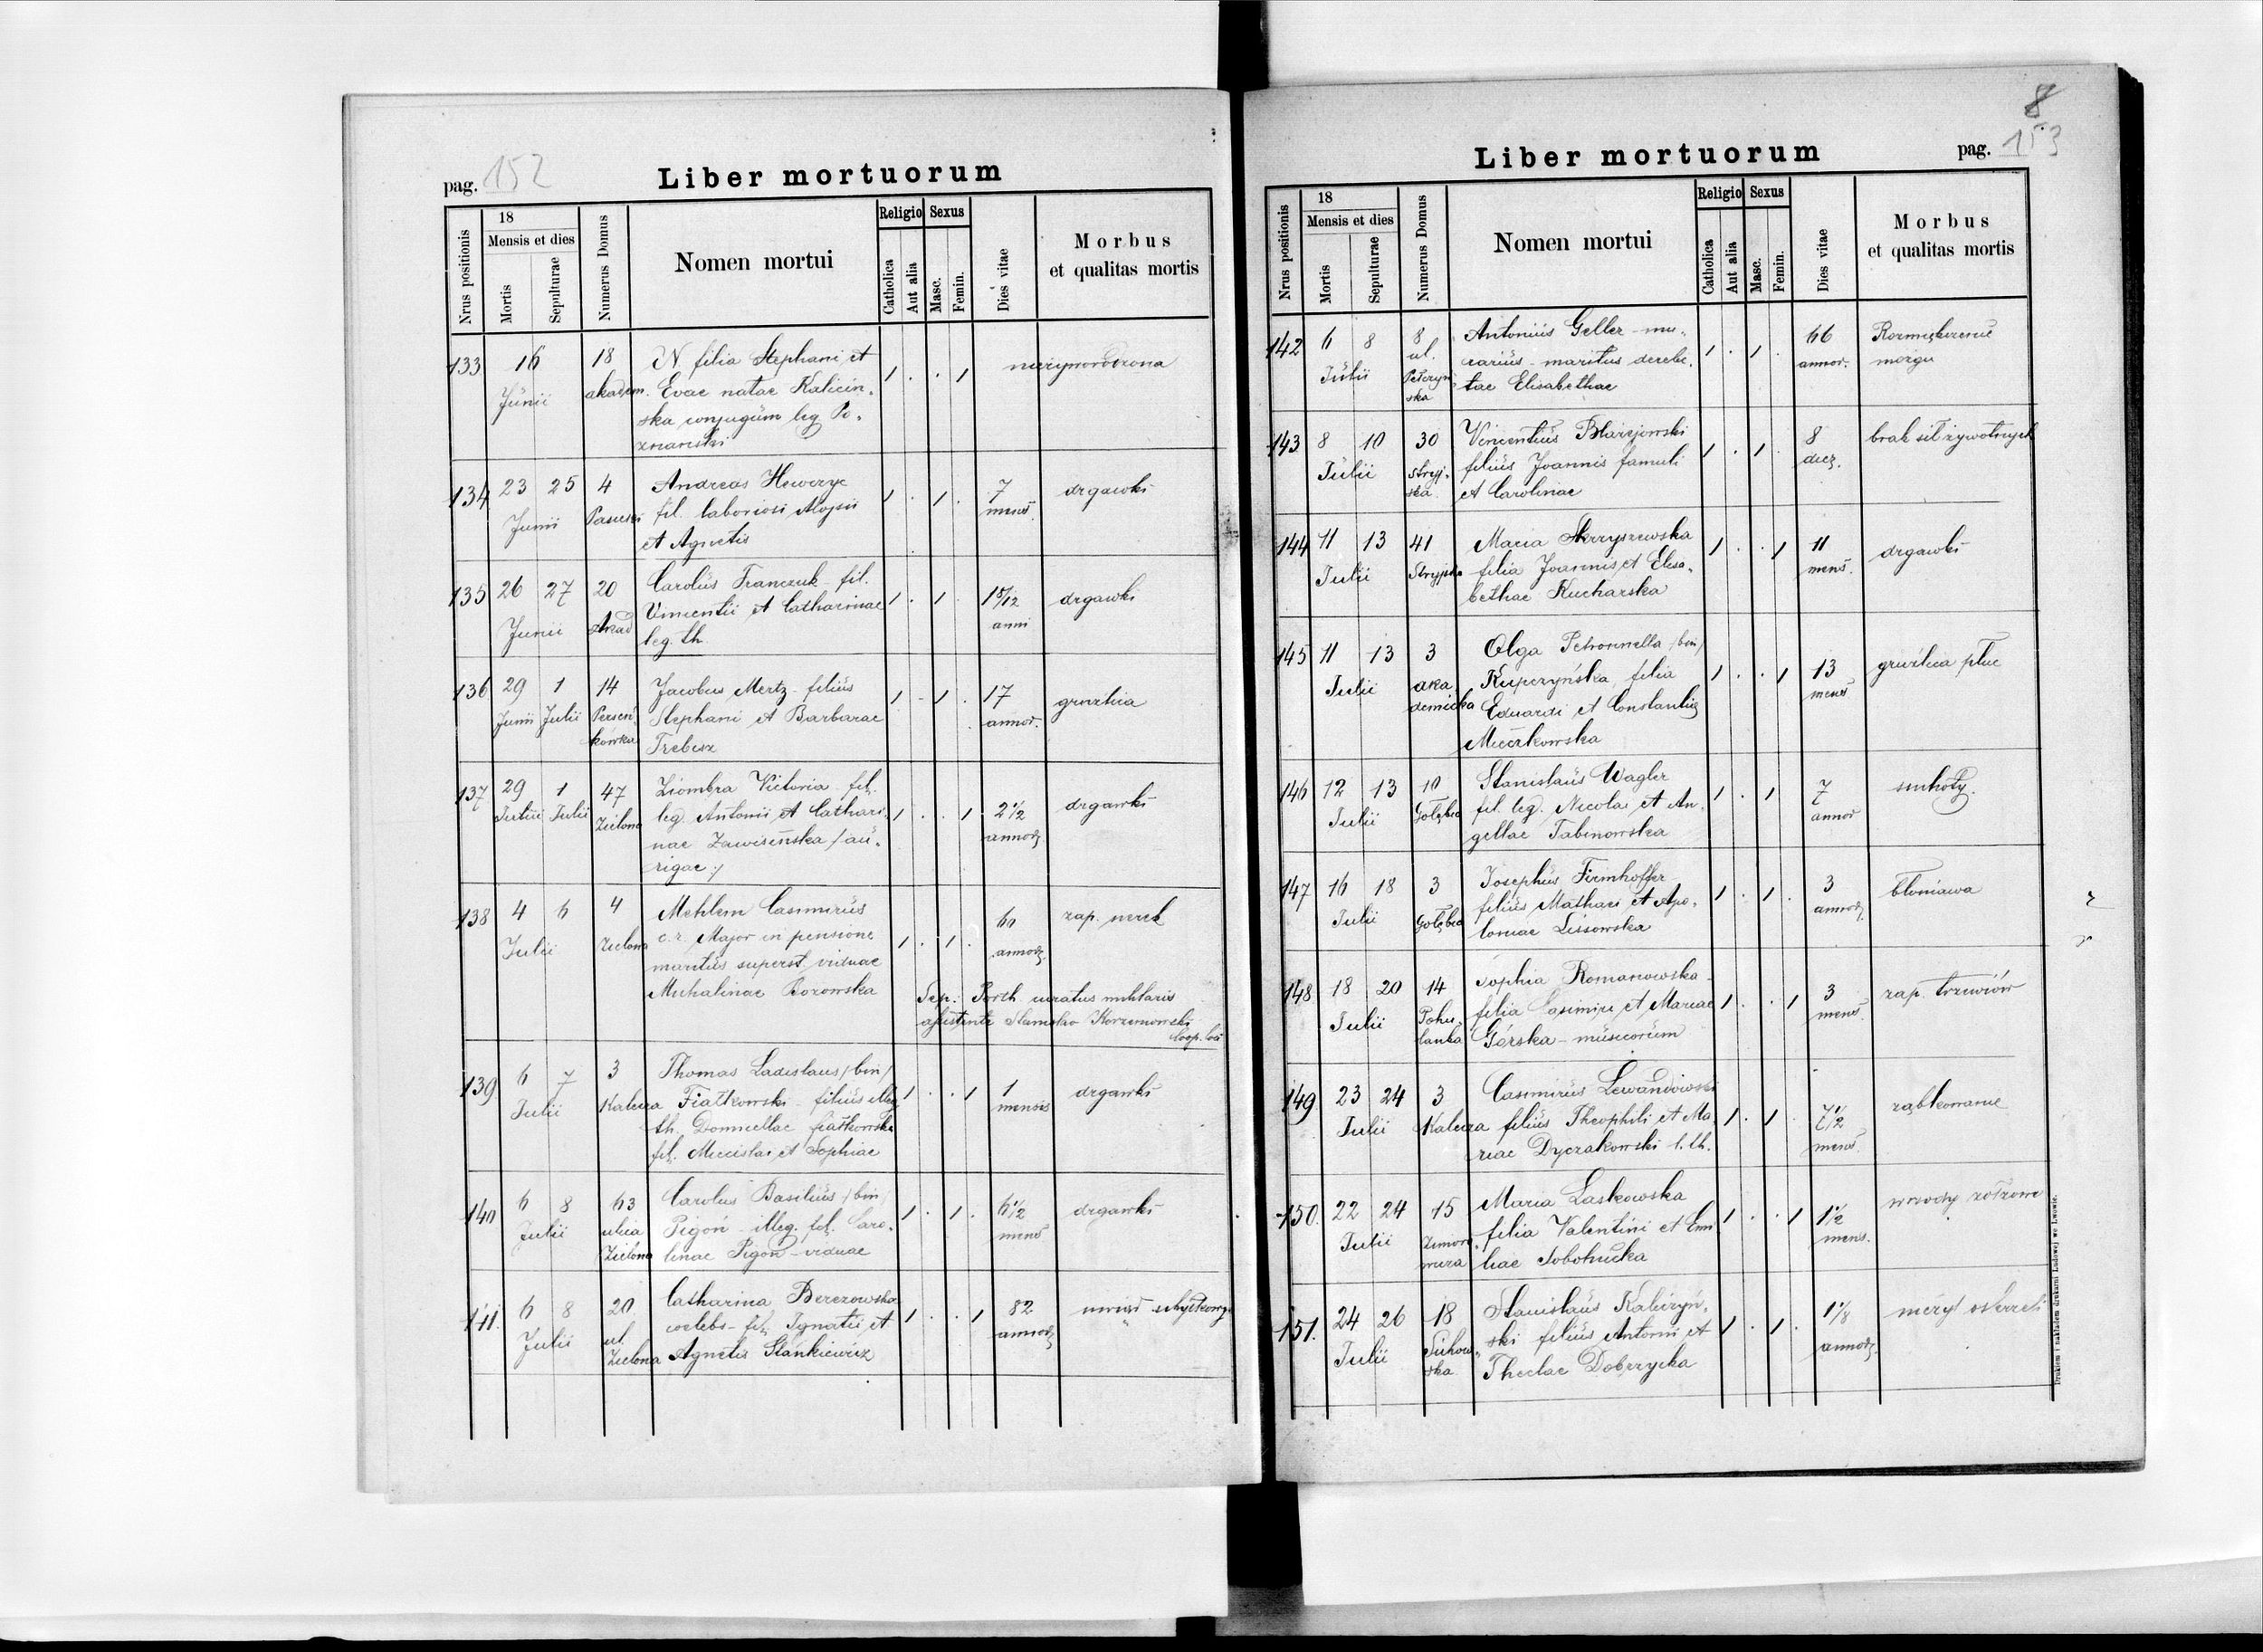 pag. 152
Liber mortuorum
Nrus positionis
18
Mensis et dies
Mortis
Sepulturae
Numerus Domus
Nomen mortui
Religio
Catholica
Aut alia
Sexus
Masc.
Femin.
Dies vitae
Morbus
et qualitas mortis
133 16 18 N. filia Stephani et 1 . . 1 nieżyworodzona
Junii akadem. Evae natae Kalicin-
ska conjugum leg. Po-
znanski
134 23 25 4 Andreas Hewryc 1 . 1 . 7 drgawki
Junii Pasieki fil. laboriosi Aloysii mens.
et Agnetis
135 26 27 20 Carolus Franczuk fil. 1 . 1 . 1 8/12 drgawki
Junii Akad Vincentii et Catharinae anni
leg. th.
136 29 1 14 Jacobus Mertz - filius 1 . 1 . 17 gruzlica
Junii Julii Persen- Stephani et Barbarae annor.
kówka Trebisz
137 29 1 47 Ziombra Victoria fil. 1 . . 1 2 1/2 drgawki
Julii Zielona leg. Antonii et Cathari- annor.
nae Zawisińska /au-
rigae/
138 4 6 4 Mehlem Casimirus 1 . 1 . 60 zap. nerek
Julii Zielona c. r. Major in pensione annor.
maritus superst. viduae
Michalinae Borowska
Sep. curatus militaris
assistente Stanislao
Coop. loci
139 6 7 3 Thomas Ladislaus /bin/ 1 . . 1 1 drgawki
Julii Kalecza Fiałkowski - filius illeg. mensis
th. Domicellae Fiałkowska
fil. Miecislai et Sophiae
140 6 8 63 Carolus Basilius /bin/ 1 . 1 . 6 1/2 drgawki
Julii ulica Pigoń - illeg. fil. Caro- mens
Zielona linae Pigoń - viduae
141. 6 8 20 Catharina Berezowska 1 . . 1 82 uwiąd
Julii ul. coelebs - fil. Ignatii et annor.
Zielona Agnetis Stankiewicz
8
Liber mortuorum
pag. 153
Nrus positionis
18
Mensis et dies
Mortis
Sepulturae
Numerus Domus
Nomen mortui
Religio
Catholica
Aut alia
Sexus
Masc.
Femin.
Dies vitae
Morbus
et qualitas mortis
142 6 8 8 Antonius Geller - mu- 1 . 1 . 66 Rozmiękczenie
Julii ul. rarius - maritus derelic- annor. mózgu
Pełczyń- tae Elisabethae
ska
143 8 10 30 Vincentius Błażejowski 1 . 1 . 8 brak sił żywotnych
Julii stryj- filius Joannis famuli dies.
ska et Carolinae
144 11 13 41 Maria Skrzyszewska 1 . . 1 11 drgawki
Julii Stryjska filia Joannis et Elisa- mens.
bethae Kucharska
145 11 13 3 Olga Petronnella /bin/ 1 . . 1 13 gruźlica płuc
Julii aka Kupczyńska filia mens
demicka Eduardi et Constantiae
Mieczkowska
146 12 13 10 Stanislaus Wagler 1 . 1 7 suchoty.
Julii Gołębia fil. leg. Nicolai et An- annor
gellae Tabinowska
147 16 18 3 Josephus Firmhoffer 1 . 1 . 3 błoniawa
Julii Gołębia filius Mathaei et Apo- annor.
loniae Lissowska
148 18 20 14 Sophia Romanowska - 1 . . 1 3 zap. trzewiów
Julii Pohu- filia Casimiri et Mariae mens.
lanka Górska - musicorum
149. 23 24 3 Casimirus Lewandowski 1 . 1 . 7 1/2 ząbkowanie
Julii Kalecza filius Theophili et Ma- mens
riae Dyczakowski l. th.
150. 22 24 15 Maria Laskowska 1 . . 1 1 1/2 wrzody
Julii Zimoro- filia Valentini et Emi- mens.
wicza liae Sobotnicka
151. 24 26 18 Stanislaus Kaliczyń- 1 . 1 . 1 1/8 nieżyt oskrzeli
Julii Sichow- ski filius Antonii et annor.
ska Theclae Dobrzycka
Drukiem i nakładem drukarni Ludowej we Lwowie.